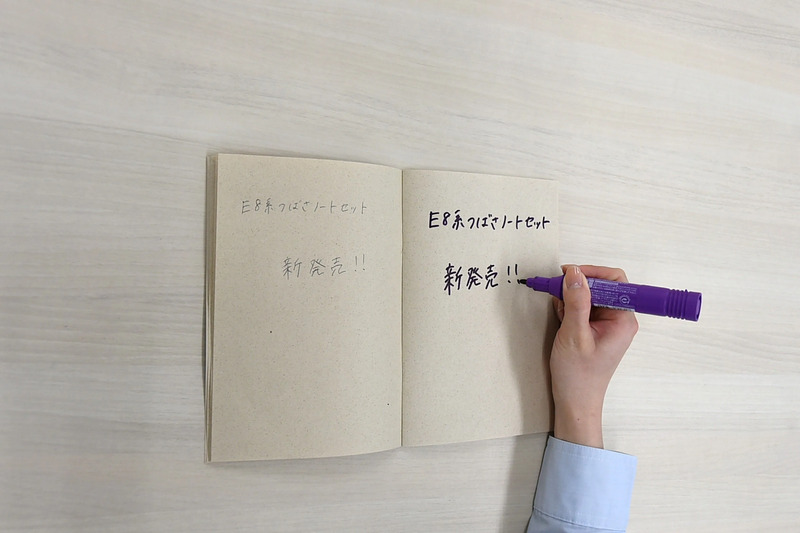 E8系つばさノートセット
新発売!!
E8系つばさノートセット
新発売!!